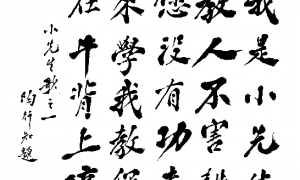 我是小先生
教人不害羞
您没有功夫
来學我教您
在牛背上
小先生歌之一
陶行知題